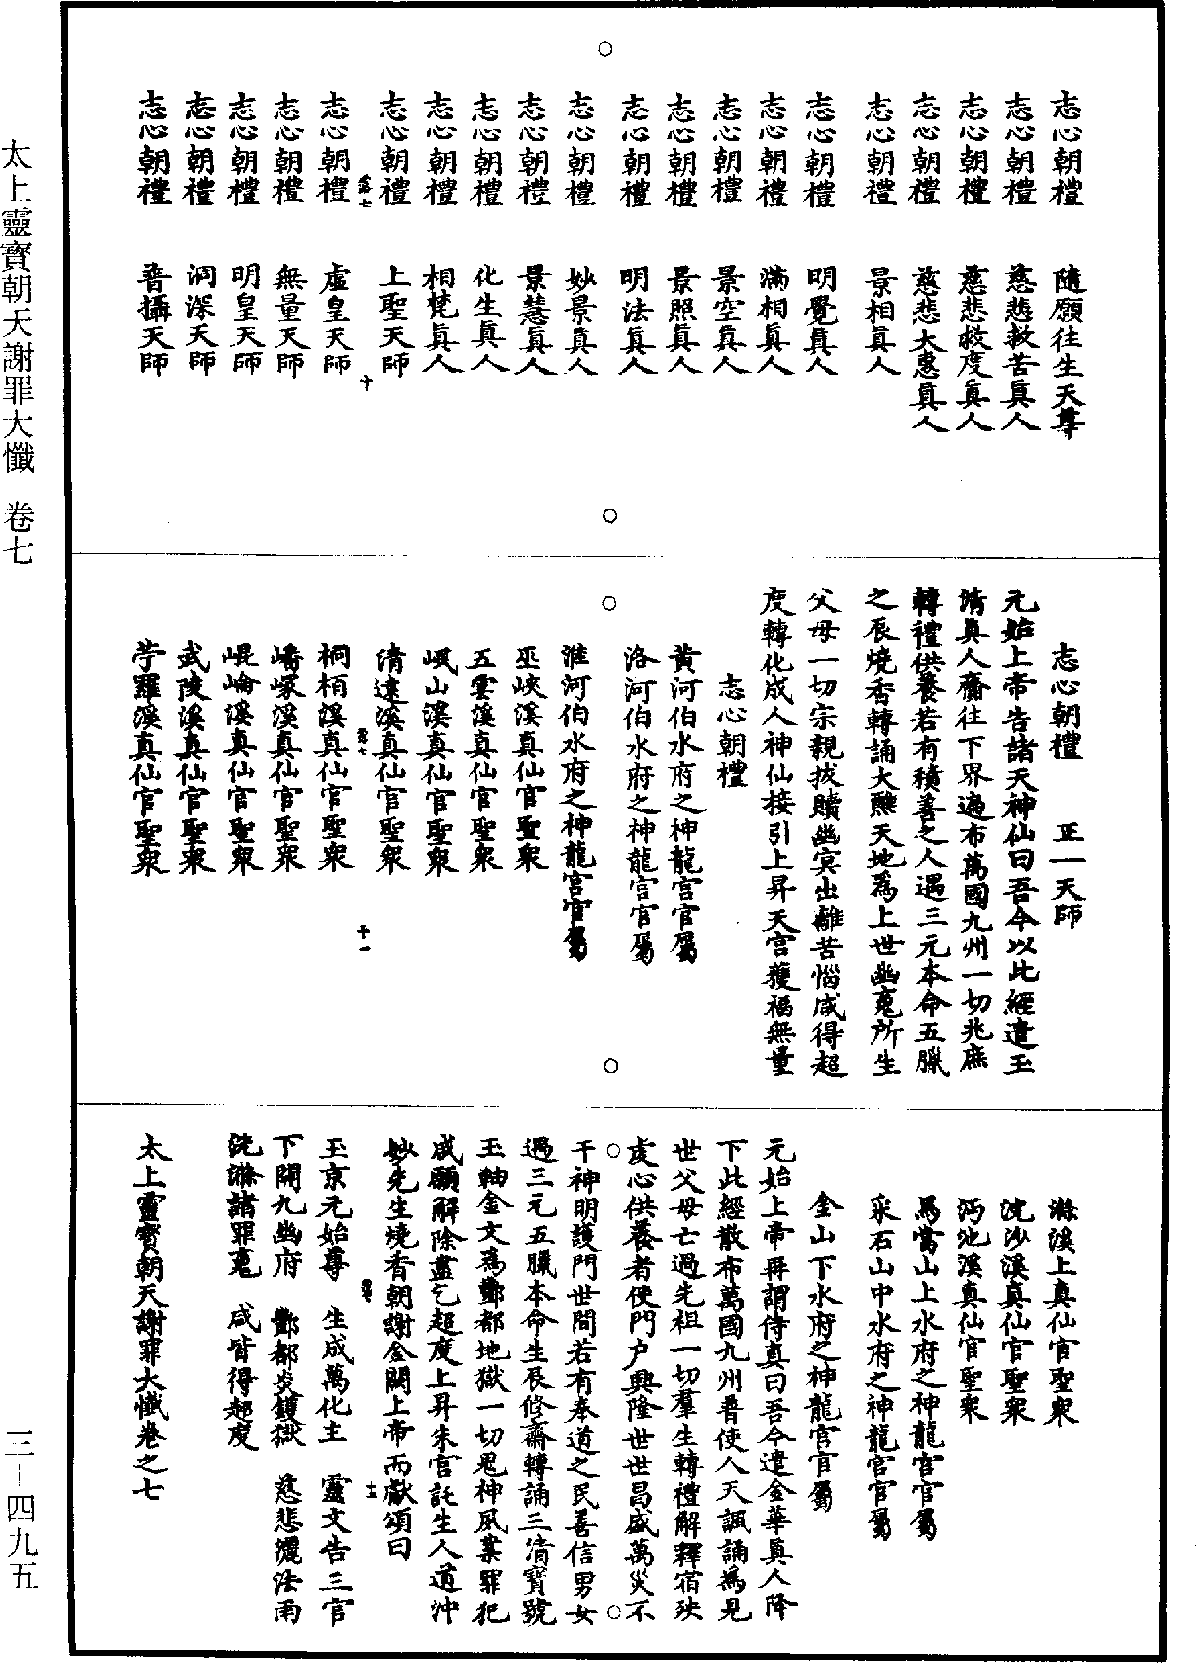 太上靈寶朝天謝罪大懺　卷七
三—四九五
志心朝禮　隨願往生天尊
志心朝禮　慈悲救苦真人
志心朝禮　慈悲救度真人
志心朝禮　慈悲大惠真人
志心朝禮　景相真人
志心朝禮　明覺真人
志心朝禮　滿相真人
志心朝禮　景空真人
志心朝禮　景照真人
志心朝禮　明法真人
志心朝禮　妙景真人
志心朝禮　景慧真人
志心朝禮　化生真人
志心朝禮　相梵真人
志心朝禮　上聖天師
十
志心朝禮　虛皇天師
志心朝禮　無量天師
志心朝禮　明皇天師
志心朝禮　洞深天師
志心朝禮　普攝天師
志心朝禮　正一天師
元始上帝告諸天神仙曰吾今以此經遣玉
清真人齎往下界遍布萬國九州一切兆庶
轉禮供養若有積善之人遇三元本命五臘
之辰燒香轉誦大醮天地為上世幽䰟所生
父母一切宗親拔贖幽冥出離苦惱咸得超
度轉化成人神仙接引上昇天宮獲福無量
志心朝禮
黃河伯水府之神龍宮官屬
洛河伯水府之神龍宮官屬
淮河伯水府之神龍宮官屬
巫峽溪真仙官聖衆
五雲溪真仙官聖衆
岷山溪真仙官聖衆
清遠溪真仙官聖衆
十一
桐栢溪真仙官聖衆
嶓冢溪真仙官聖衆
崐崘溪真仙官聖衆
武陵溪真仙官聖衆
苧羅溪真仙官聖衆
滁溪上真仙官聖衆
浣沙溪真仙官聖衆
沔池溪真仙官聖衆
馬當山上水府之神龍宮官屬
采石山中水府之神龍宮官屬
金山下水府之神龍宮官屬
元始上帝再謂侍真曰吾今遣金華真人降
下此經散布萬國九州普使人天諷誦為見
世父母亡過先祖一切羣生轉禮解釋宿殃
虔心供養者使門户興隆世世昌盛萬災不
干神明護門世間若有奉道之民善信男女
遇三元五臘本命生辰修齋轉誦三清寶號
玉軸金文為酆都地獄一切鬼神夙業罪犯
咸願解除盡乞超度上昇朱宮託生人道沖
妙先生燒香朝謝金闕上帝而獻頌曰
十二
玉京元始尊　生成萬化主　靈文告三官
下開九幽府　酆都炎鑊獄　慈悲灑法雨
洗滌諸罪䰟　咸皆得超度
太上靈寶朝天謝罪大懺卷之七